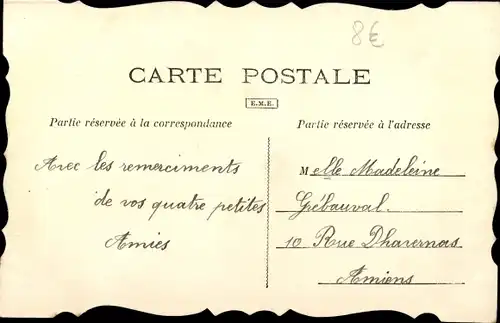 8€
CARTE POSTALE
E.M.E.
Partie réservée à la correspondance
Partie réservée à l'adresse
Avec les remerciments
de vos quatre petites
Amies
Melle Madeleine
Grébauval.
10 Rue Dhavernas
Amiens